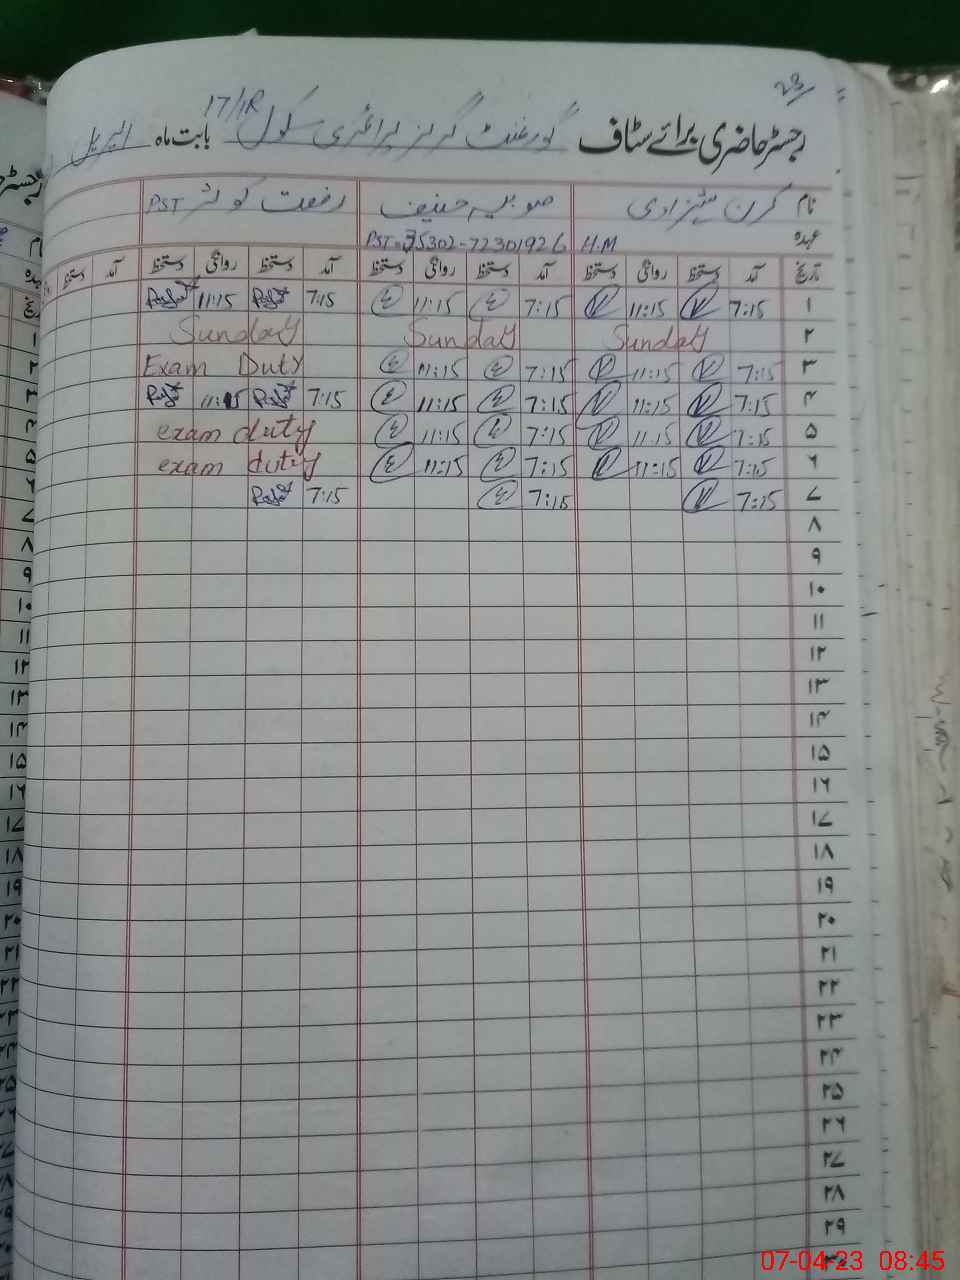 23
17/1R
رجسٹر حاضری برائے سٹاف گورنمنٹ گرلز پرائمری سکول بابت ماہ اپریل
نام کرن شہزادی صوبیہ حنیف رفعت کوثر PST
عہدہ H.M PST 35302-72301926
تاریخ آمد دستخط روانگی دستخط آمد دستخط روانگی دستخط آمد دستخط روانگی دستخط آمد دستخط
۱ 7:15 11:15 7:15 11:15 7:15 11:15
۲ Sunday Sunday Sunday
۳ 7:15 11:15 7:15 11:15 Exam Duty
۴ 7:15 11:15 7:15 11:15 7:15 11:15
۵ 7:15 11:15 7:15 11:15 exam duty
۶ 7:15 11:15 7:15 11:15 exam duty
۷ 7:15 7:15 7:15
۸
۹
۱۰
۱۱
۱۲
۱۳
۱۴
۱۵
۱۶
۱۷
۱۸
۱۹
۲۰
۲۱
۲۲
۲۳
۲۴
۲۵
۲۶
۲۷
۲۸
۲۹
۳۰
07-04-23 08:45